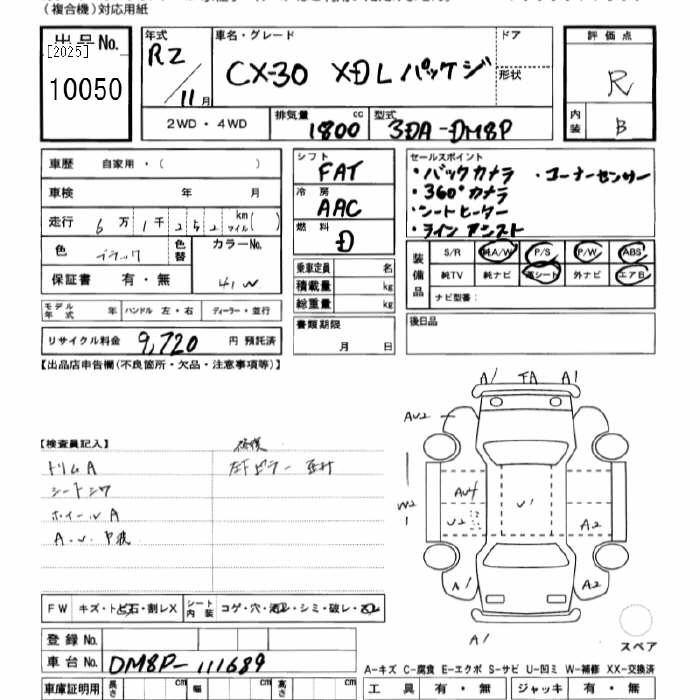 (複合機)対応用紙
出品No.
[2025]
10050
年式
R2/11月
車名・グレード
CX-30 XDLパッケジ
ドア
形状
評価点
R
内装
B
2WD・4WD
排気量
1800cc
型式
3DA-DM8P
車歴 自家用・( )
車検 年 月
走行 6万1千252 km マイル( )
色 ブラック
色替
カラーNo.
41W
保証書 有・無
モデル年式 年
ハンドル 左・右
ディーラー・並行
リサイクル料金 9,720 円 預託済
シフト
FAT
冷房
AAC
燃料
D
乗車定員 名
積載量 kg
総重量 kg
書類期限
月 日
セールスポイント
・バックカメラ ・コーナーセンサー
・360°カメラ
・シートヒーター
・ラインアシスト
装備品
S/R 純A/W P/S P/W ABS
純TV 純ナビ 革シート 外ナビ エアB
ナビ型番:
後日品
【出品店申告欄(不良箇所・欠品・注意事項等)】
【検査員記入】
トリムA
シートシワ
ホイールA
修復
A1 A1
AU2
W2
AU4
U2
U1
A2
A1
A2
A1
スペア
FW キズ・トビ石・割レX
シート内装
コゲ・穴・汚レ・シミ・破レ・スレ
登録No.
車台No. DM8P-111689
車庫証明用 長さ cm 幅 cm 高さ cm
A-キズ C-腐食 E-エクボ S-サビ U-凹ミ W-補修 XX-交換済
工具 有・無 ジャッキ 有・無